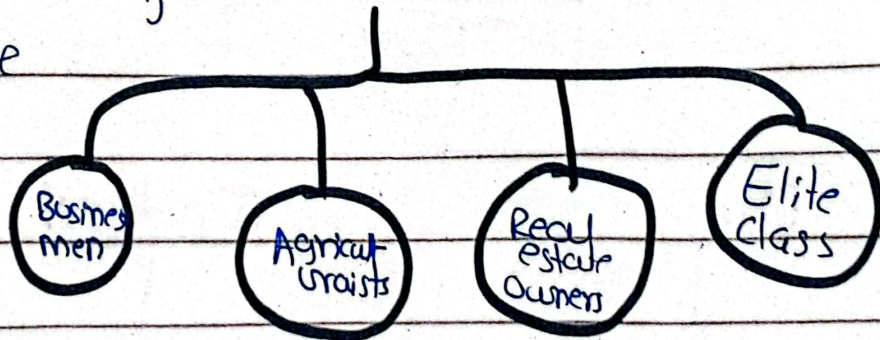 e
Busines
men
Agricut
uraists
Real
estate
Owners
Elite
Class